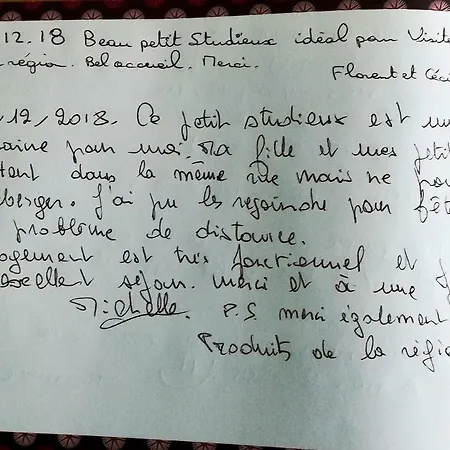 12.18 Beau petit studieux idéal pour Visite
région. Bel accueil. Merci.
Florent et Céci
12/2018. Ce petit studieux est un
aine pour moi. Ma fille et mes petit
tent dans la même rue mais ne pou
berger. J'ai pu les rejoindre pour fêt
problème de distance.
ogement est très fonctionnel et
excellent séjour. Merci et à une
Michelle. P.S. merci également
Produits de la régio